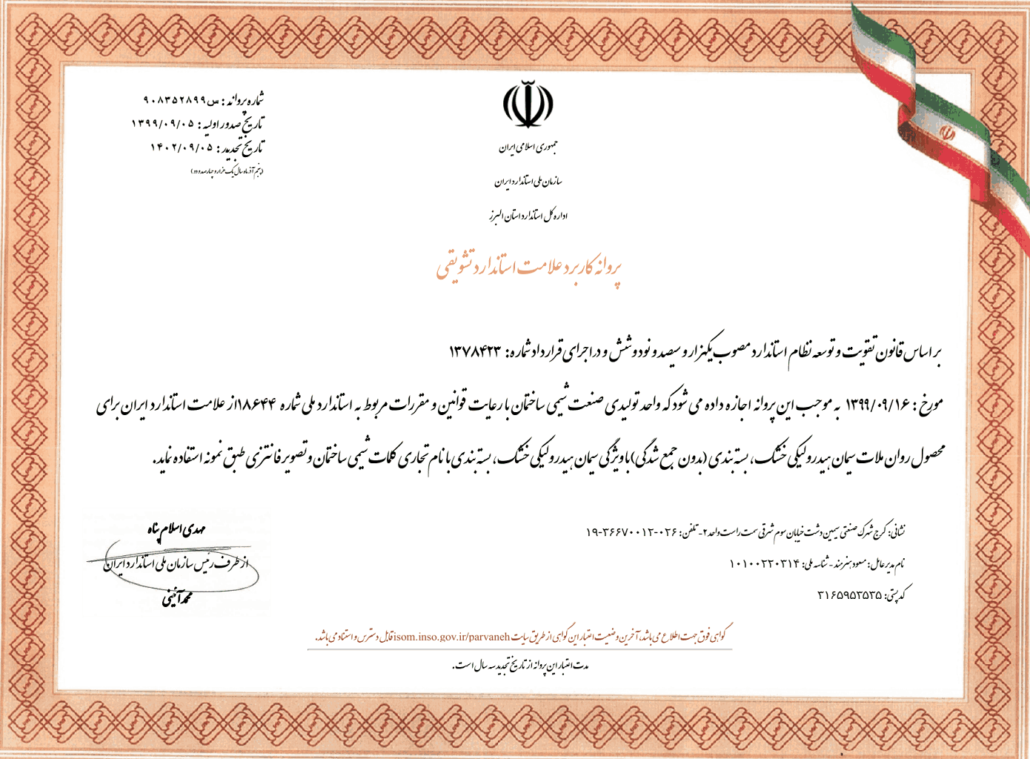 شماره پروانه : س ۹۰۸۳۵۲۸۹۹
تاریخ صدور اولیه : ۱۳۹۹/۰۹/۰۵
تاریخ تجدید : ۱۴۰۲/۰۹/۰۵
(پنجم آذر ماه سال یک هزار و چهارصد و دو)
جمهوری اسلامی ایران
سازمان ملی استاندارد ایران
اداره کل استاندارد استان البرز
پروانه کاربرد علامت استاندارد تشویقی
بر اساس قانون تقویت و توسعه نظام استاندارد مصوب یکهزار و سیصد و نود و شش و در اجرای قرارداد شماره: ۱۳۷۸۴۲۳
مورخ : ۱۳۹۹/۰۹/۱۶ به موجب این پروانه اجازه داده می شود که واحد تولیدی صنعت شیمی ساختمان با رعایت قوانین و مقررات مربوط به استاندارد ملی شماره ۱۸۶۴۴ از علامت استاندارد ایران برای
محصول روان ملات سیمان هیدرولیکی خشک، بسته بندی (بدون جمع شدگی) با ویژگی سیمان هیدرولیکی خشک، بسته بندی با نام تجاری کلمات شیمی ساختمان و تصویر فانتزی طبق نمونه استفاده نماید.
نشانی: کرج شرکت صنعتی سیمین دشت خیابان سوم شرقی سمت راست واحد ۲- تلفن: ۰۲۶-۳۶۶۷۰۰۱۲-۱۹
نام مدیر عامل: مسعود هنرمند - شناسه ملی: ۱۰۱۰۰۲۲۰۳۱۴
کد پستی: ۳۱۶۵۹۵۳۵۳۵
مهدی اسلام پناه
از طرف رئیس سازمان ملی استاندارد ایران
محمد آئینی
گواهی فوق جهت اطلاع می باشد، آخرین وضعیت اعتبار این گواهی از طریق سایت isom.inso.gov.ir/parvaneh قابل دسترس و استناد می باشد.
مدت اعتبار این پروانه از تاریخ تجدید سه سال است.